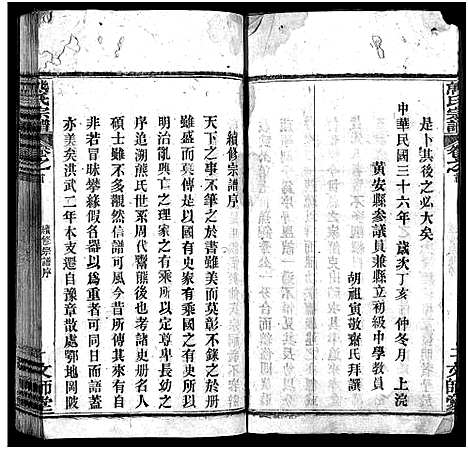 熊氏宗譜
是卜其後之必大矣
中華民國三十六年 歲次丁亥 仲冬月 上浣
黃安縣參議員兼縣立初級中學教員
胡祖寅敬齋氏拜撰
文師堂
續修宗譜序
天下之事不筆之於書雖美而莫彰不錄之於册
雖盛而莫傳是以國有史家有乘國之有史所以
明治亂興亡之理家之有乘所以定尊卑長幼之
序追溯熊氏世系周代鬻熊後也考諸史册名人
碩士雖不多觀然信譜可風今昔所傳其來有自
非若冒昧攀緣假名器以為重者可同日而語猗
亦美矣洪武二年木支遷自豫章散處鄂地岡陂
熊氏宗譜
續修宗譜序